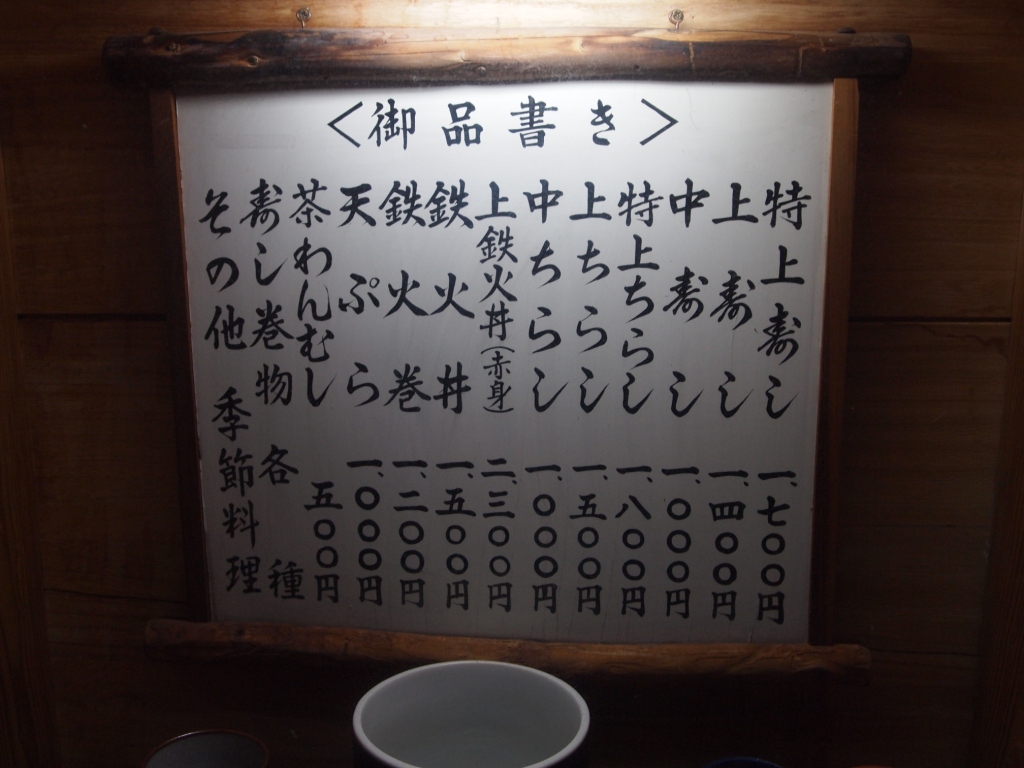 〈御品書き〉
特上寿し 一、七〇〇円
上寿し 一、四〇〇円
中寿し 一、〇〇〇円
特上ちらし 一、八〇〇円
上ちらし 一、五〇〇円
中ちらし 一、〇〇〇円
上鉄火丼(赤身) 二、三〇〇円
鉄火丼 一、五〇〇円
鉄火巻 一、二〇〇円
天ぷら 一、〇〇〇円
茶わんむし 五〇〇円
寿し巻物 各種
その他 季節料理